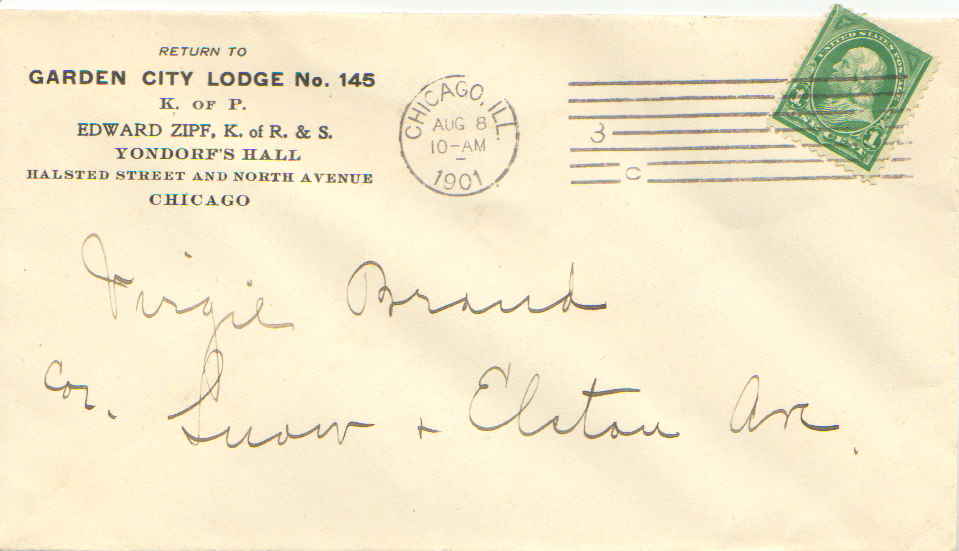 RETURN TO
GARDEN CITY LODGE No. 145
K. OF P.
EDWARD ZIPF, K. of R. & S.
YONDORF'S HALL
HALSTED STREET AND NORTH AVENUE
CHICAGO
CHICAGO, ILL.
AUG 8
10-AM
1901
3
C
UNITED STATES POSTAGE
1 ONE CENT 1
Virgil Brand
Cor. Snow + Elston Ave.